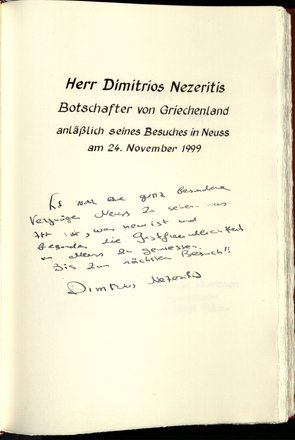 Herr Dimitrios Nezeritis
Botschafter von Griechenland
anläßlich seines Besuches in Neuss
am 24. November 1999
Es war eine ganz besondere
Vergnügen Neuss zu sehen was
ist und
besonders die Gastfreundlichkeit
zu geniessen.
Bis zum nächsten Besuch!!
Dimitrios Nezeritis